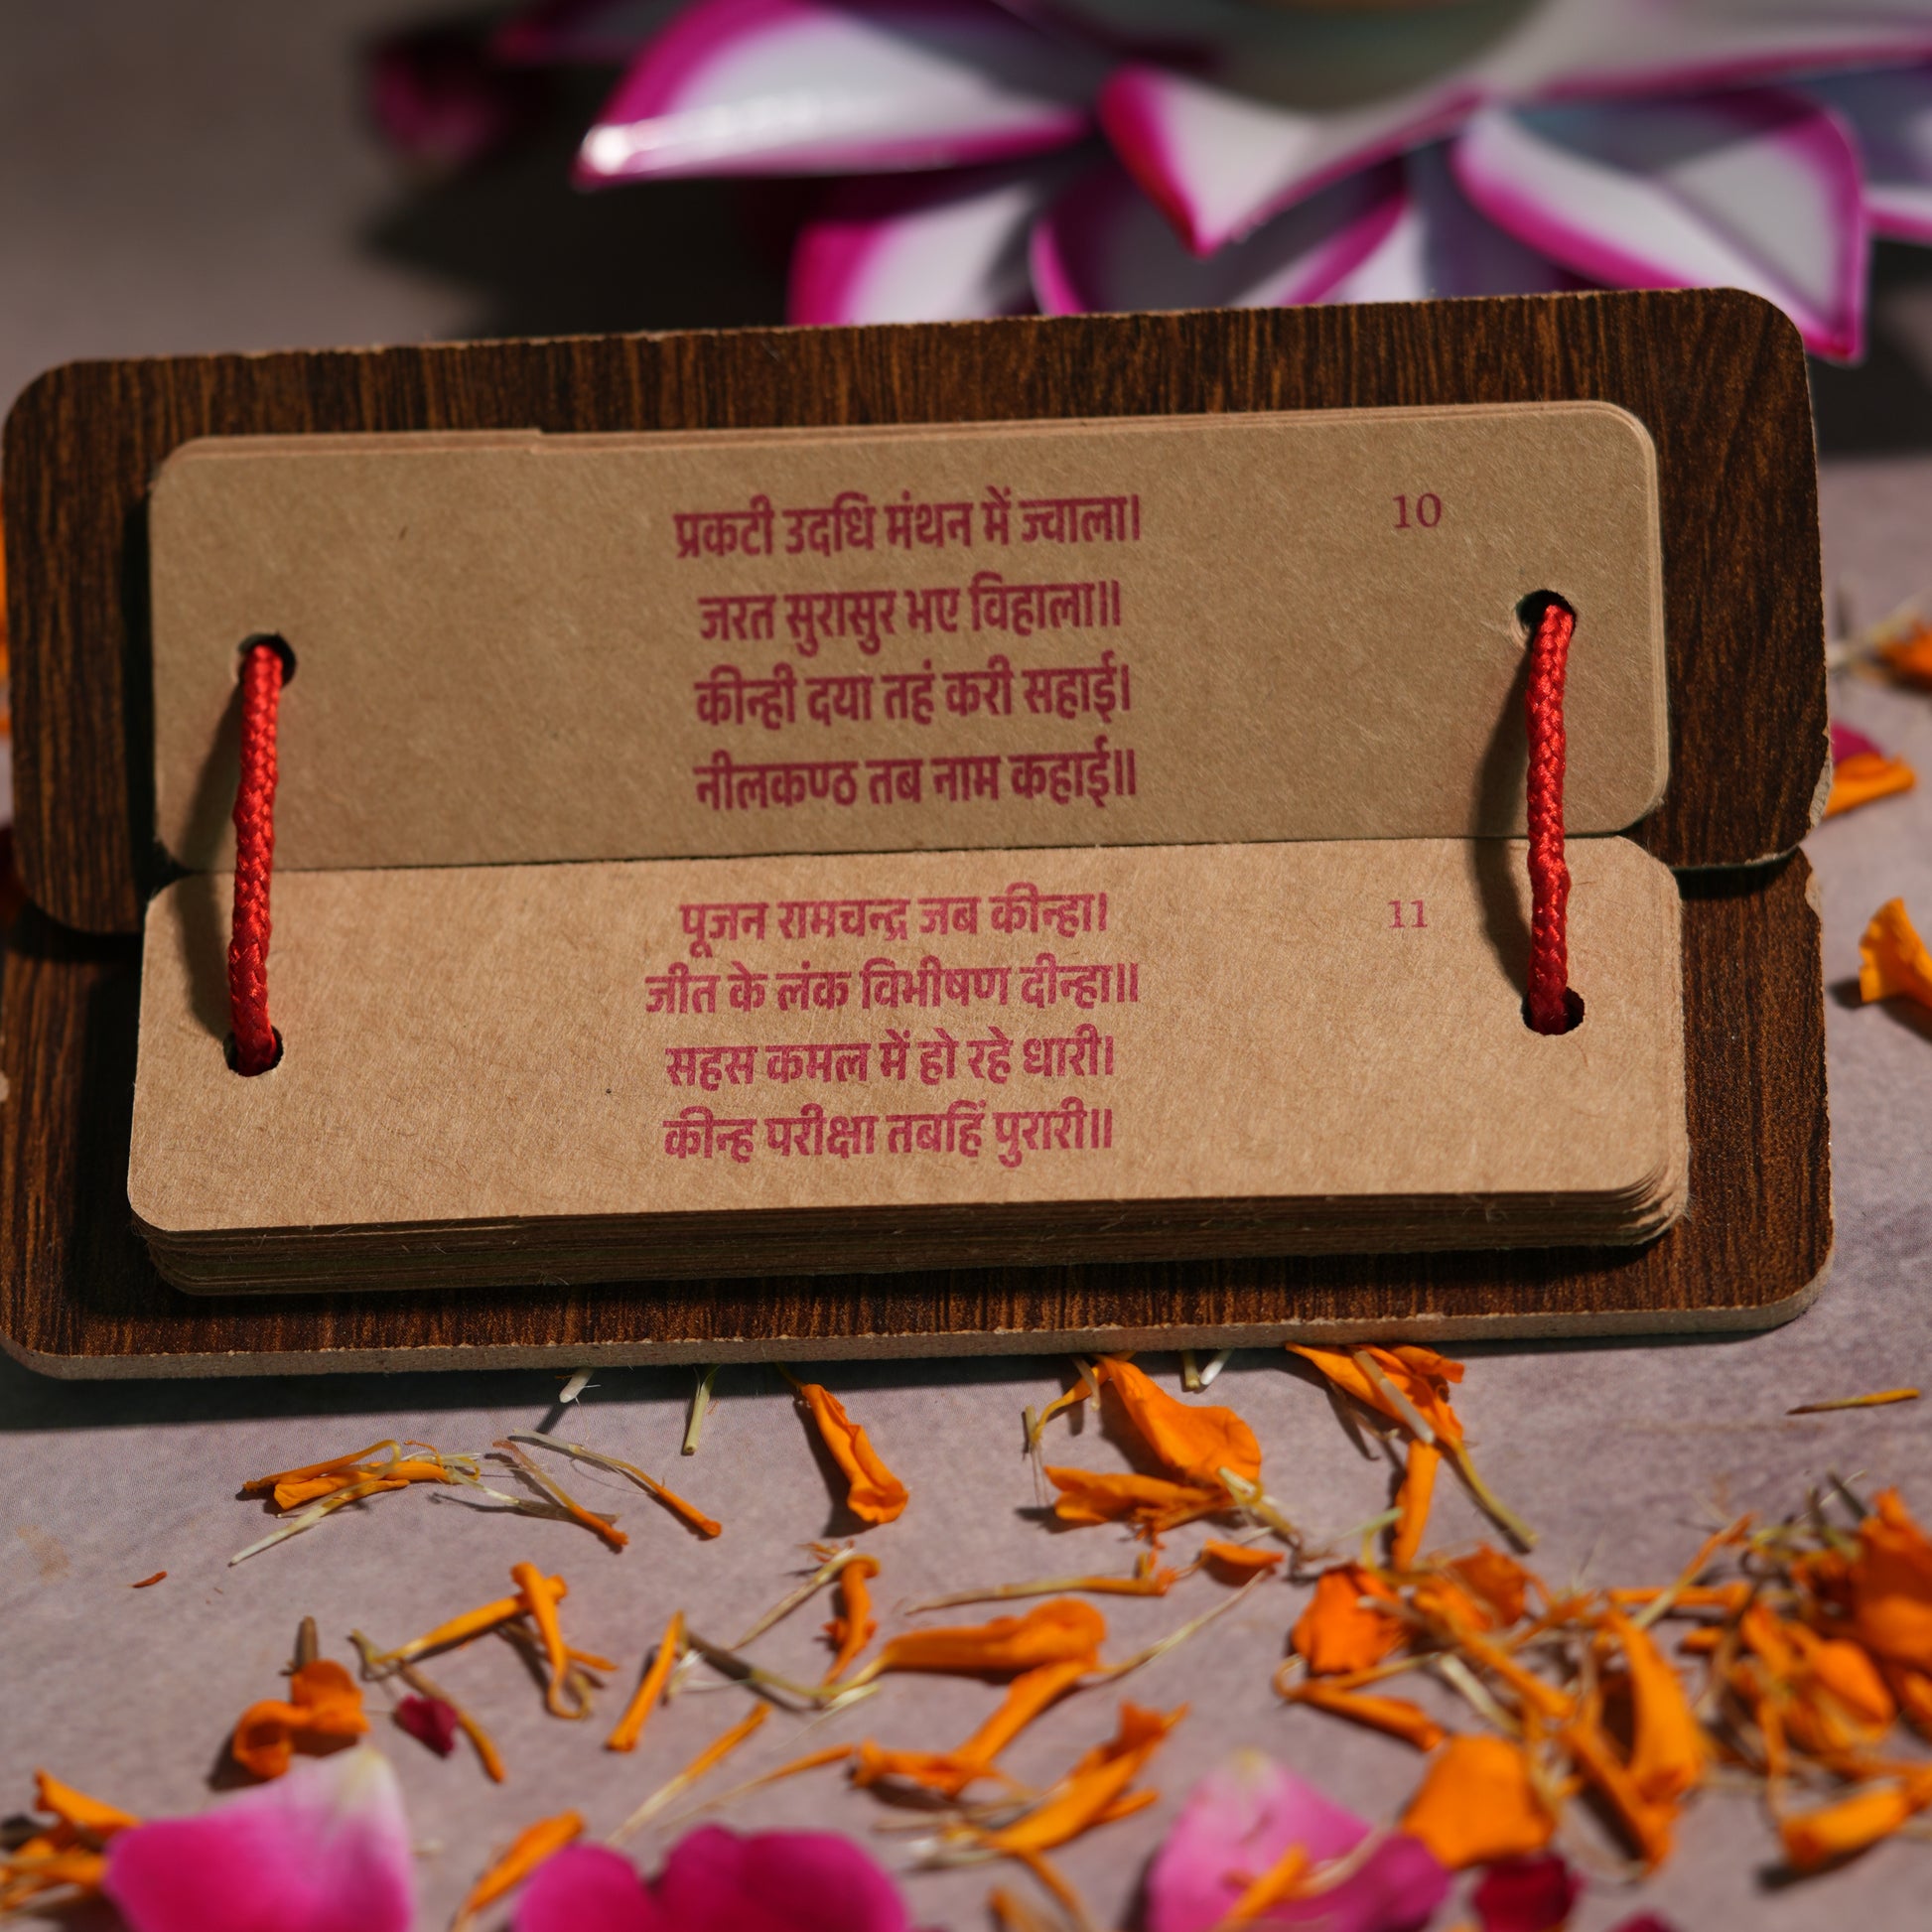 प्रकटी उदधि मंथन में ज्वाला। 10
जरत सुरासुर भए विहाला॥
कीन्ही दया तहं करी सहाई।
नीलकण्ठ तब नाम कहाई॥
पूजन रामचन्द्र जब कीन्हा। 11
जीत के लंक विभीषण दीन्हा॥
सहस कमल में हो रहे धारी।
कीन्ह परीक्षा तबहिं पुरारी॥